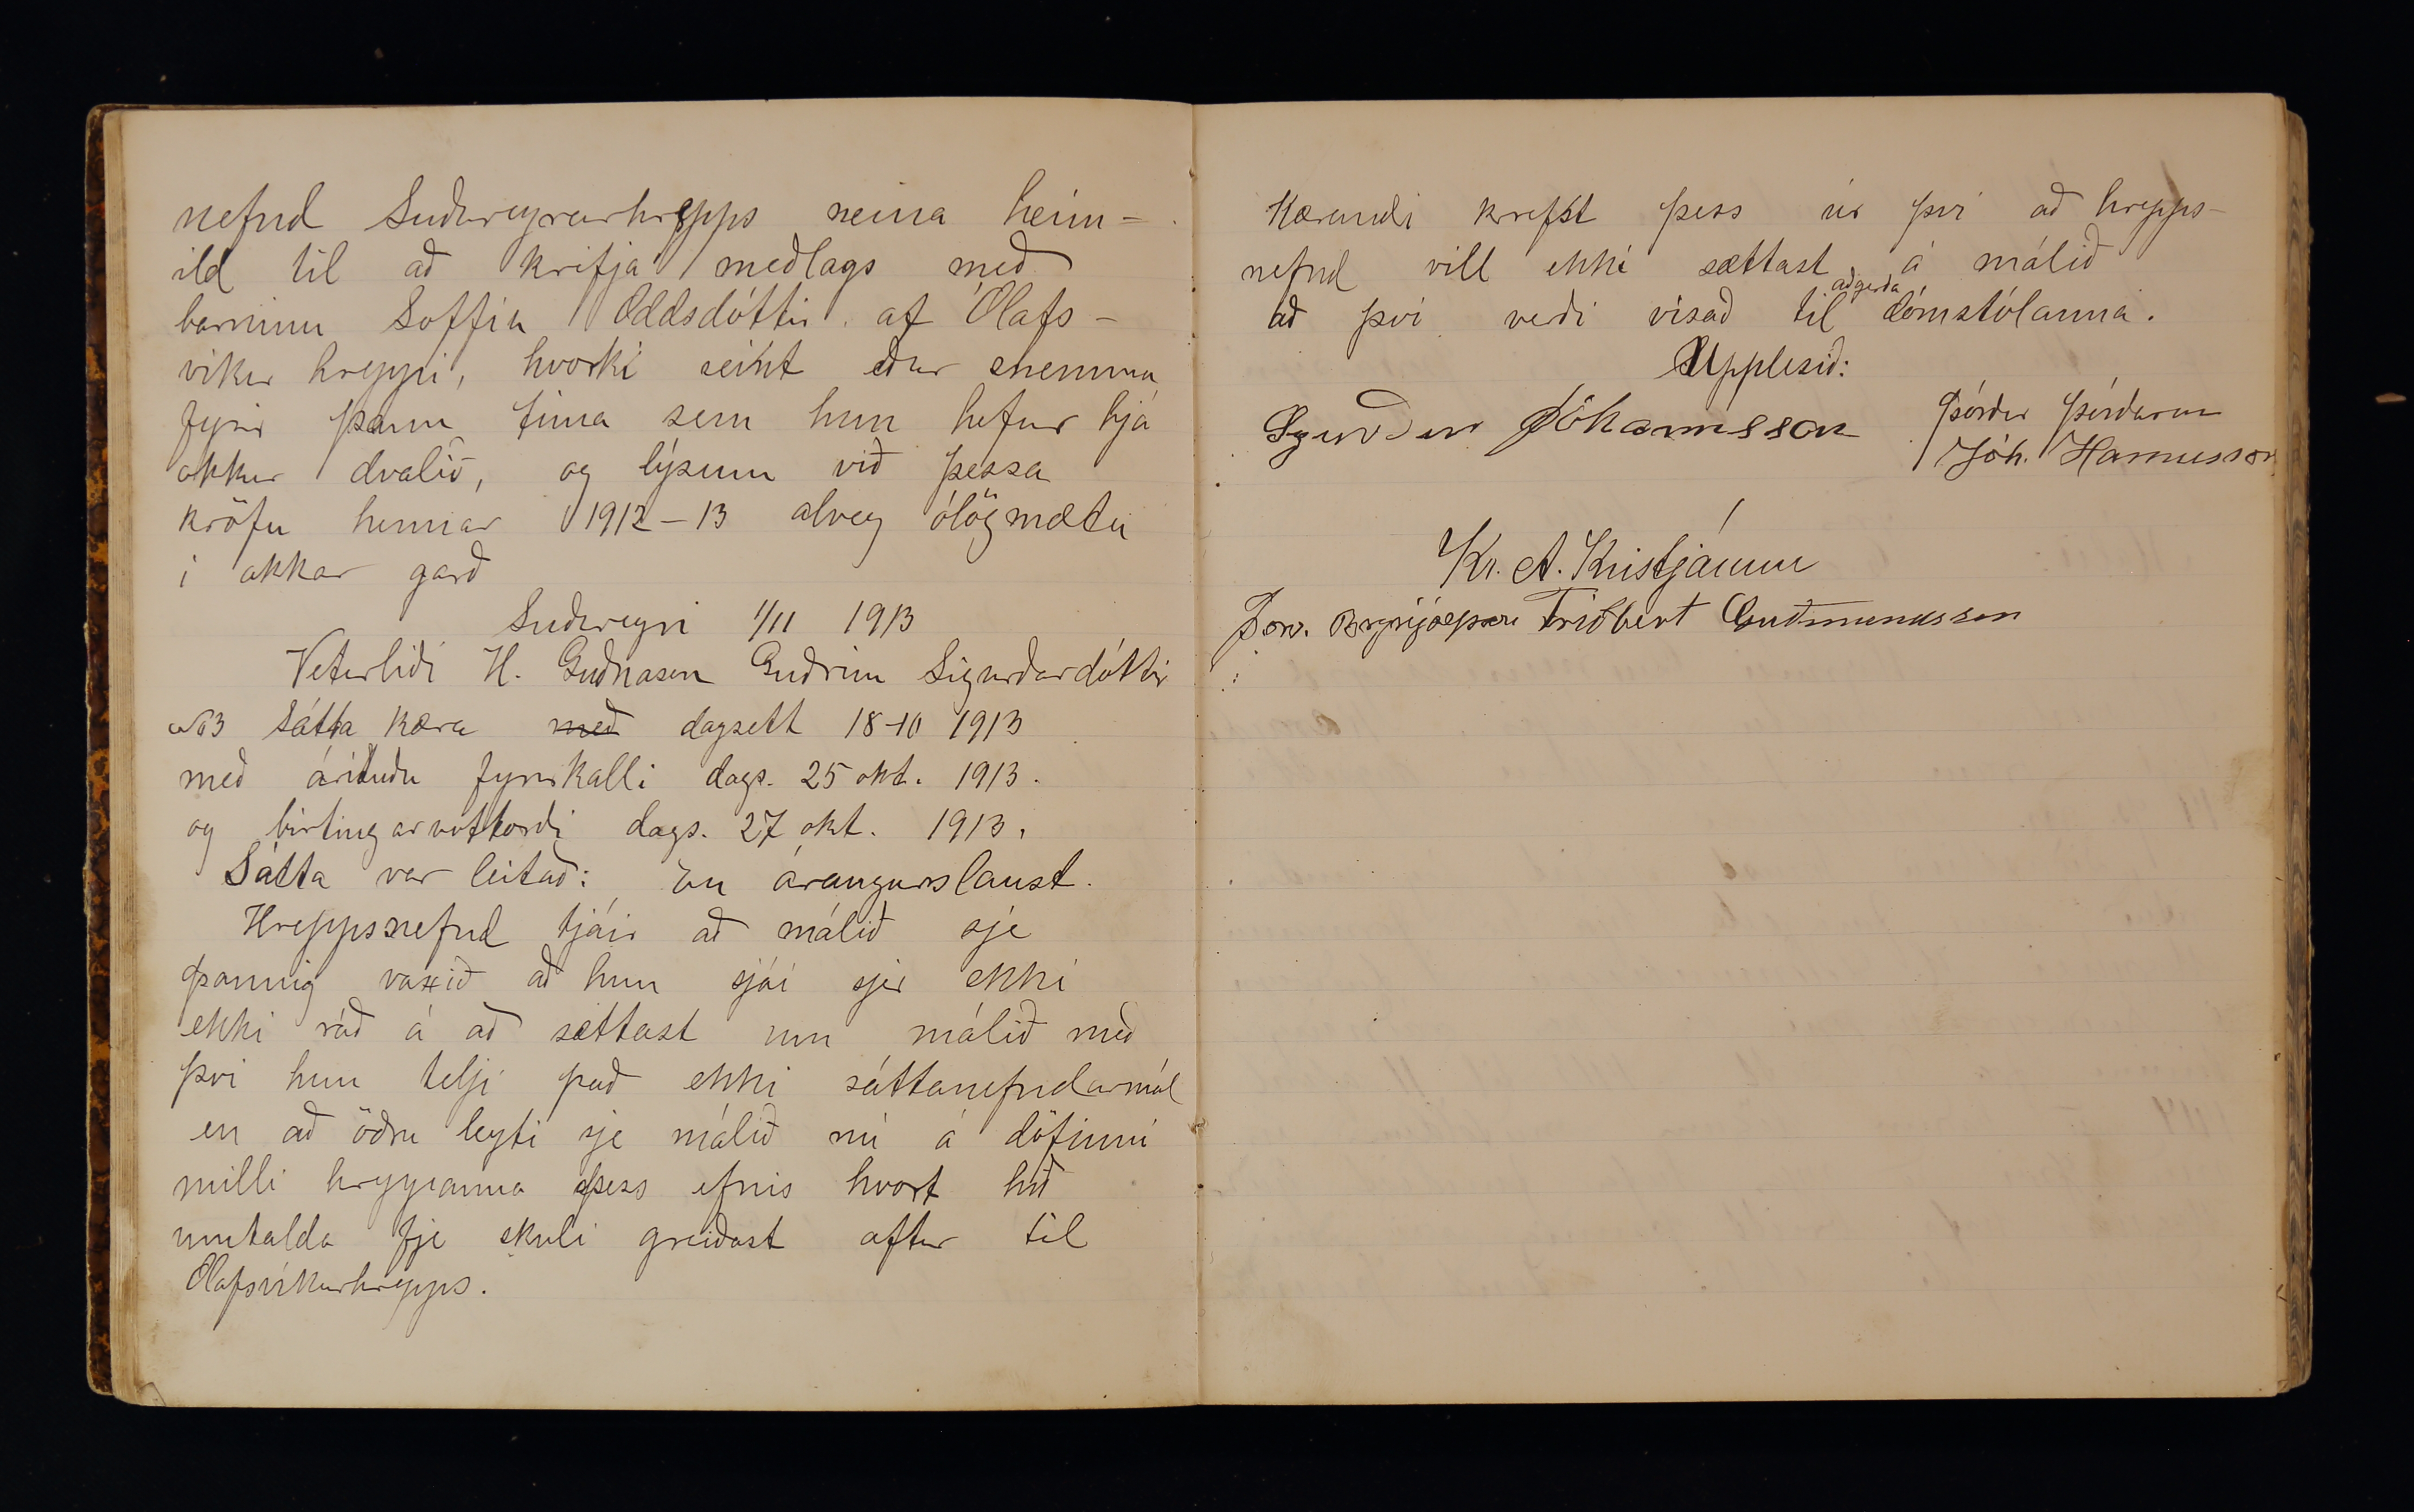 nefnd Suðureyrarhrepps neina heim-
ild til að krefja meðlags með
barninu Soffíu Oddsdóttir af Ólafs-
víkur hreppi, hvorki seint eður snemma
fyrir þann tíma sem hun hefur hjá
okkur dvalið, og lýsum við þessa
kröfu hennar 1912-13 alveg ólögmæta
í okkar garð
Suðureyri 1/11 1913
Veturliði H. Guðnason Guðrún Sigurðardóttir
No3 Sátta kæra með dagsett 18-10 1913
með árituðu fyrirkalli dags. 25 okt. 1913.
og birtingarvottorði dags. 27 okt. 1913.
Sátta var leitað: En árangurslaust.
Hreppsnefnd tjáir að málið sje
þannig vaxið að hun sjái sjer ekki
ekki ráð á að sættast um málið með
því hun telji það ekki sáttanefndarmál
en að öðru leyti sje málið nú á döfinni
milli hreppanna þess efnis hvort hið
umtalda fje skuli greiðast aftur til
Ólafsvíkurhrepps.
Kærandi krefst þess úr því að hrepps-
nefnd vill ekki sættast á málið
að því verði vísað til aðgerða dómstólanna.
Upplesið:
Sigurður Jóhannsson Þórður Þórðarson
Jóh. Hannesson
Kr. A. Kristjánsson
Þorv. Brynjólfsson Friðbert Guðmundsson